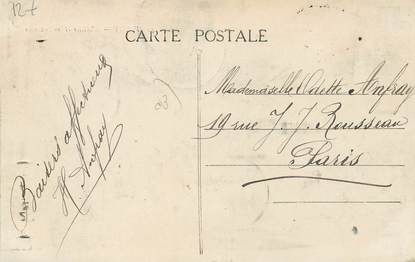 12+
CARTE POSTALE
Baisers affectueux
Mademoiselle Odette Anfray
19 rue J. J. Rousseau
Paris